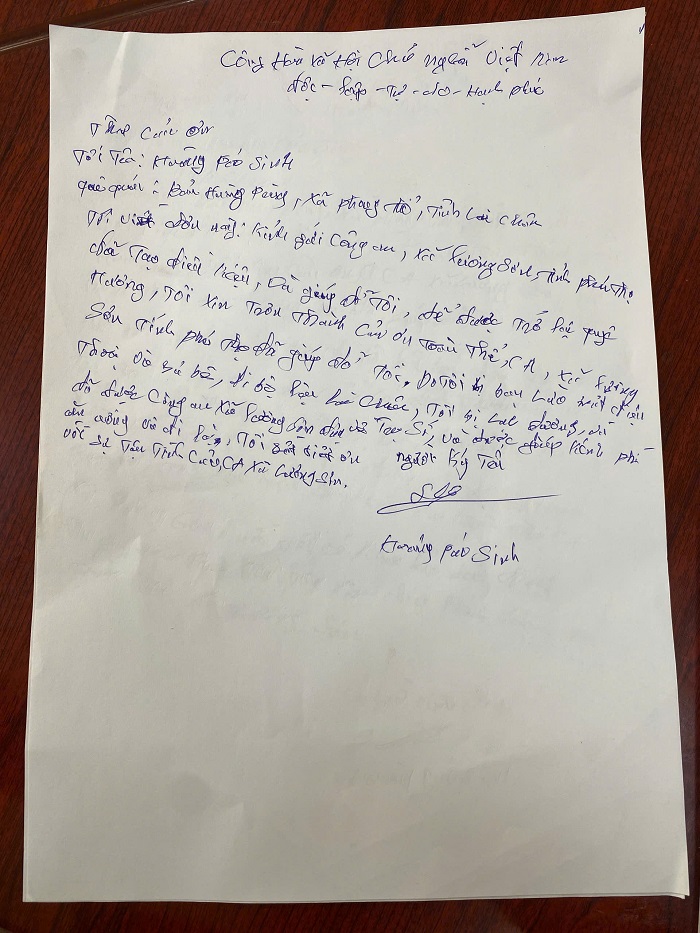 Cộng Hòa Xã Hội Chủ nghĩa Việt Nam
độc - lập - Tự - do - Hạnh phúc
Thư Cảm ơn
Tôi Tên: Hoàng Páo Sinh
quê quán: Bản Hoàng Pèng, Xã phong thổ, Tỉnh Lai Châu
Tôi viết đơn này: Kính gửi Công an, xã Lương Sơn, tỉnh phú thọ
đã Tạo điều kiện, và giúp đỡ Tôi, để được trở lại quê
Hương, Tôi xin Trân Thành Cảm ơn Toàn Thể, CA, xã Lương
Sơn Tỉnh phú thọ đã giúp đỡ Tôi. Do Tôi bị bạn
Thoại và bỏ bê, đi bộ Lai Châu, Tôi bị Lạc đường, và
đã được Công an xã Lương Sơn đưa về Trụ Sở, và được giúp kinh phí
ăn uống và đi lại, Tôi biết ơn
với Sự Tận Tình Của, CA xã Lương Sơn.
người Ký Tên
Hoàng Páo Sinh